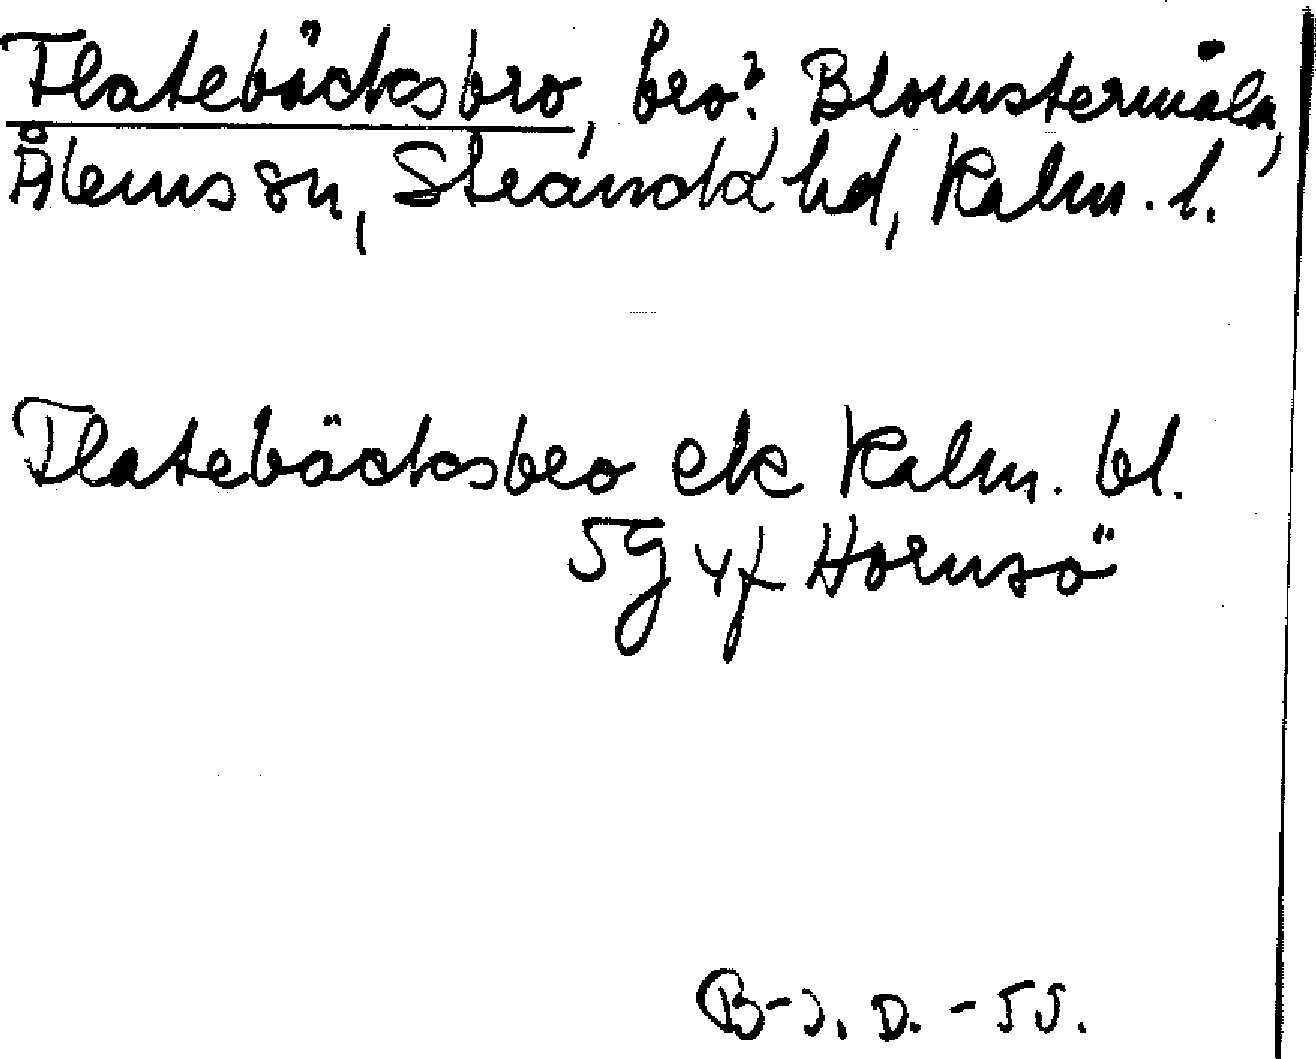 Flatebäcksbro, bro? Blomstermåla,
Ålems sn, Stranda hd, Kalm. l.
Flatebäcksbro ek Kalm. bl.
5g yf Hornsö
B-J. D. -55.